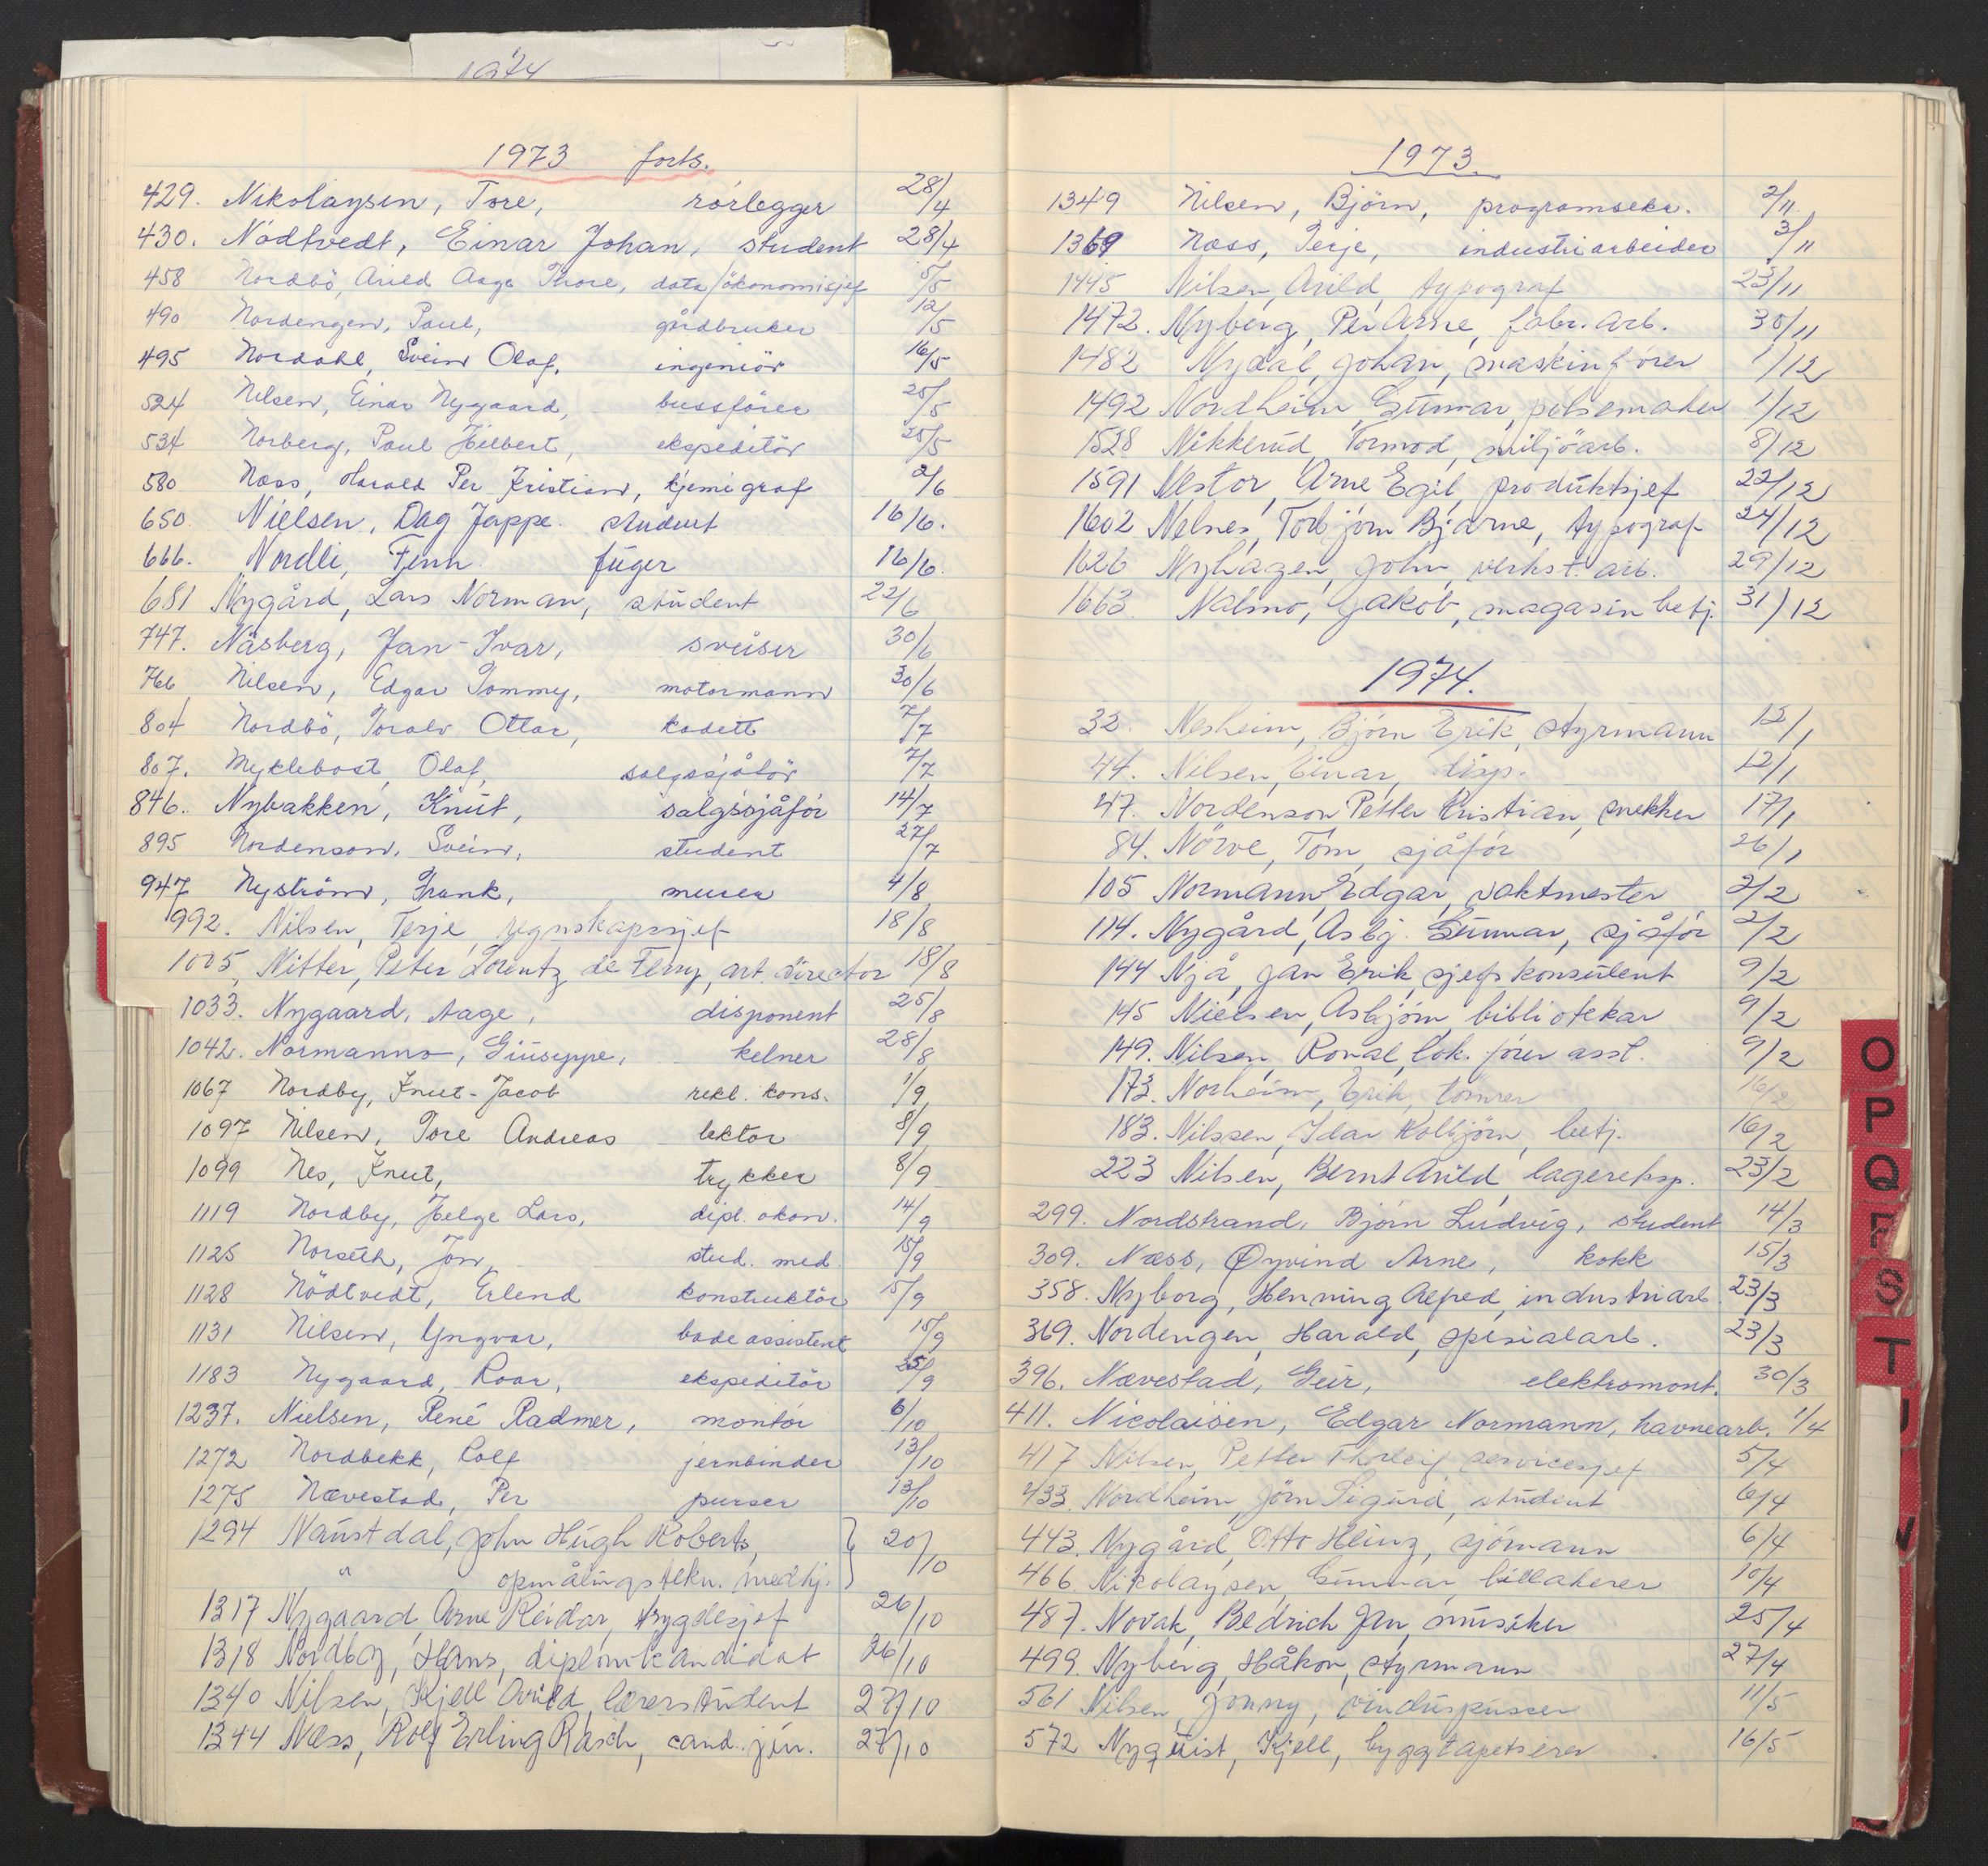 1974
1973 forts.
429. Nikolaysen, Tore, rörlegger 28/4
430. Nödtvedt, Einar Johan, student 28/4
458 Nordbö, Arild Aage Thore, data/ökonomisjef 5/5
490 Nordengen, Paul, gårdbruker 12/5
495 Nordahl, Svein Olaf, ingeniör 16/5
524 Nilsen, Einar Nygaard, bussförer 25/5
534 Norberg, Paul Hilbert, ekspeditör 25/5
580 Næss, Harald Per Kristian, kjemigraf 2/6
650 Nielsen, Dag Jappe. student 16/6.
666. Nordli, Finn fuger 16/6.
681 Nygård, Lars Norman, student 22/6
747. Näsberg, Jan-Ivar, sveiser 30/6
766 Nilsen, Edgar Tommy, motormann 30/6
804 Nordbö, Toralv Ottar, kadett 7/7
807. Myklebost, Olaf, salgssjåför 7/7
846. Nybakken, Knut, salgssjåför 14/7
895 Nordenson, Svein, student 27/7
947 Nyström, Frank, murer 4/8
992. Nilsen, Terje, regnskapssjef 18/8
1005, Nitter, Peter Lorentz de Ferry, art. director 18/8
1033. Nygaard, Aage, disponent 25/8
1042. Normanno, Giuseppe, kelner 28/8
1067 Nordby, Knut-Jacob rekl. kons. 1/9
1097 Nilsen, Tore Andreas lektor 8/9
1099 Nes, Knut, trykker 8/9
1119 Nordby, Helge Lars, dipl. økon. 14/9
1125 Norseth, Jon, stud. med. 15/9
1128 Nödtvedt, Erlend konstruktör 15/9
1131 Nilsen, Yngvar, badeassistent 15/9
1183 Nygaard, Roar, ekspeditör 25/9
1237. Nielsen, René Radmer, montör 6/10
1272 Nordbekk, Rolf jernbinder 13/10
1275 Nævestad, Per purser 13/10
1294 Naustdal, John Hugh Roberts, } 20/10
" opmålingstekn. medhj.
1317 Nygaard, Arne Reidar, trygdesjef 26/10
1318 Nordby, Hans, diplomkandidat 26/10
1340 Nilsen, Kjell Arild, lærerstudent 27/10
1344 Næss, Rolf Erling Rasch, cand. jur. 27/10
1973.
1349 Nilsen, Björn, programsekr. 2/11
1369 Næss, Terje, industriarbeider 3/11
1445 Nilsen, Arild, typograf 23/11
1472. Nyberg, Per Arne, fabr. arb. 30/11
1482 Nydal, Johan, maskinförer 1/12
1492 Nordheim, Gunnar, pölsemaker 1/12
1528 Nikkerud, Tormod, miljöarb. 8/12
1591 Nestor, Arne Egil, produktsjef 22/12
1602 Nelnes, Torbjörn Bjarne, typograf 24/12
1626 Nyhagen, John, verkst. arb. 29/12
1663 Nalmo, Jakob, magasinbetj. 31/12
1974.
32. Nesheim, Björn Erik, styrmann 12/1
44. Nilsen, Einar, disp. 12/1
47. Nordenson Petter Kristian, snekker 17/1
84. Nörve, Tom, sjåför 26/1
105 Normann Edgar, vaktmester 2/2
114. Nygård, Asbj. Gunnar, sjåför 2/2
144 Njå, Jan Erik, sjefskonsulent 9/2
145 Nielsen, Asbjörn, bibliotekar 9/2
149. Nilsen, Ronal, lok. förer asst. 9/2
173. Norheim, Erik, tömrer 16/2
183. Nilssen, Idar Kolbjörn, betj. 16/2
223 Nilsen, Bernt Arild, lagereksp. 23/2
299. Nordstrand, Björn Ludvig, student 14/3
309. Næss, Øyvind Arne, kokk 15/3
358. Nyborg, Henning Alfred, industriarb. 23/3
369. Nordengen, Harald, spesialarb. 23/3
396. Nævestad, Geir, elektromont. 30/3
411. Nicolaisen, Edgar Normann, havnearb. 1/4
417 Nilsen, Petter Thorleif servicesjef 5/4
433. Nordheim, Jörn Sigurd, student 6/4
443. Nygård, Otto Heinz, sjömann 6/4
466. Nikolaysen, Gunnar, billakerer 10/4
487. Novak, Bedrich Jan, musiker 25/4
499. Nyberg, Håkon, styrmann 27/4
561 Nilsen, Jonny, vinduspusser 11/5
572 Nyquist, Kjell, byggtapetserer 16/5
O
P
Q
R
S
T
U
V